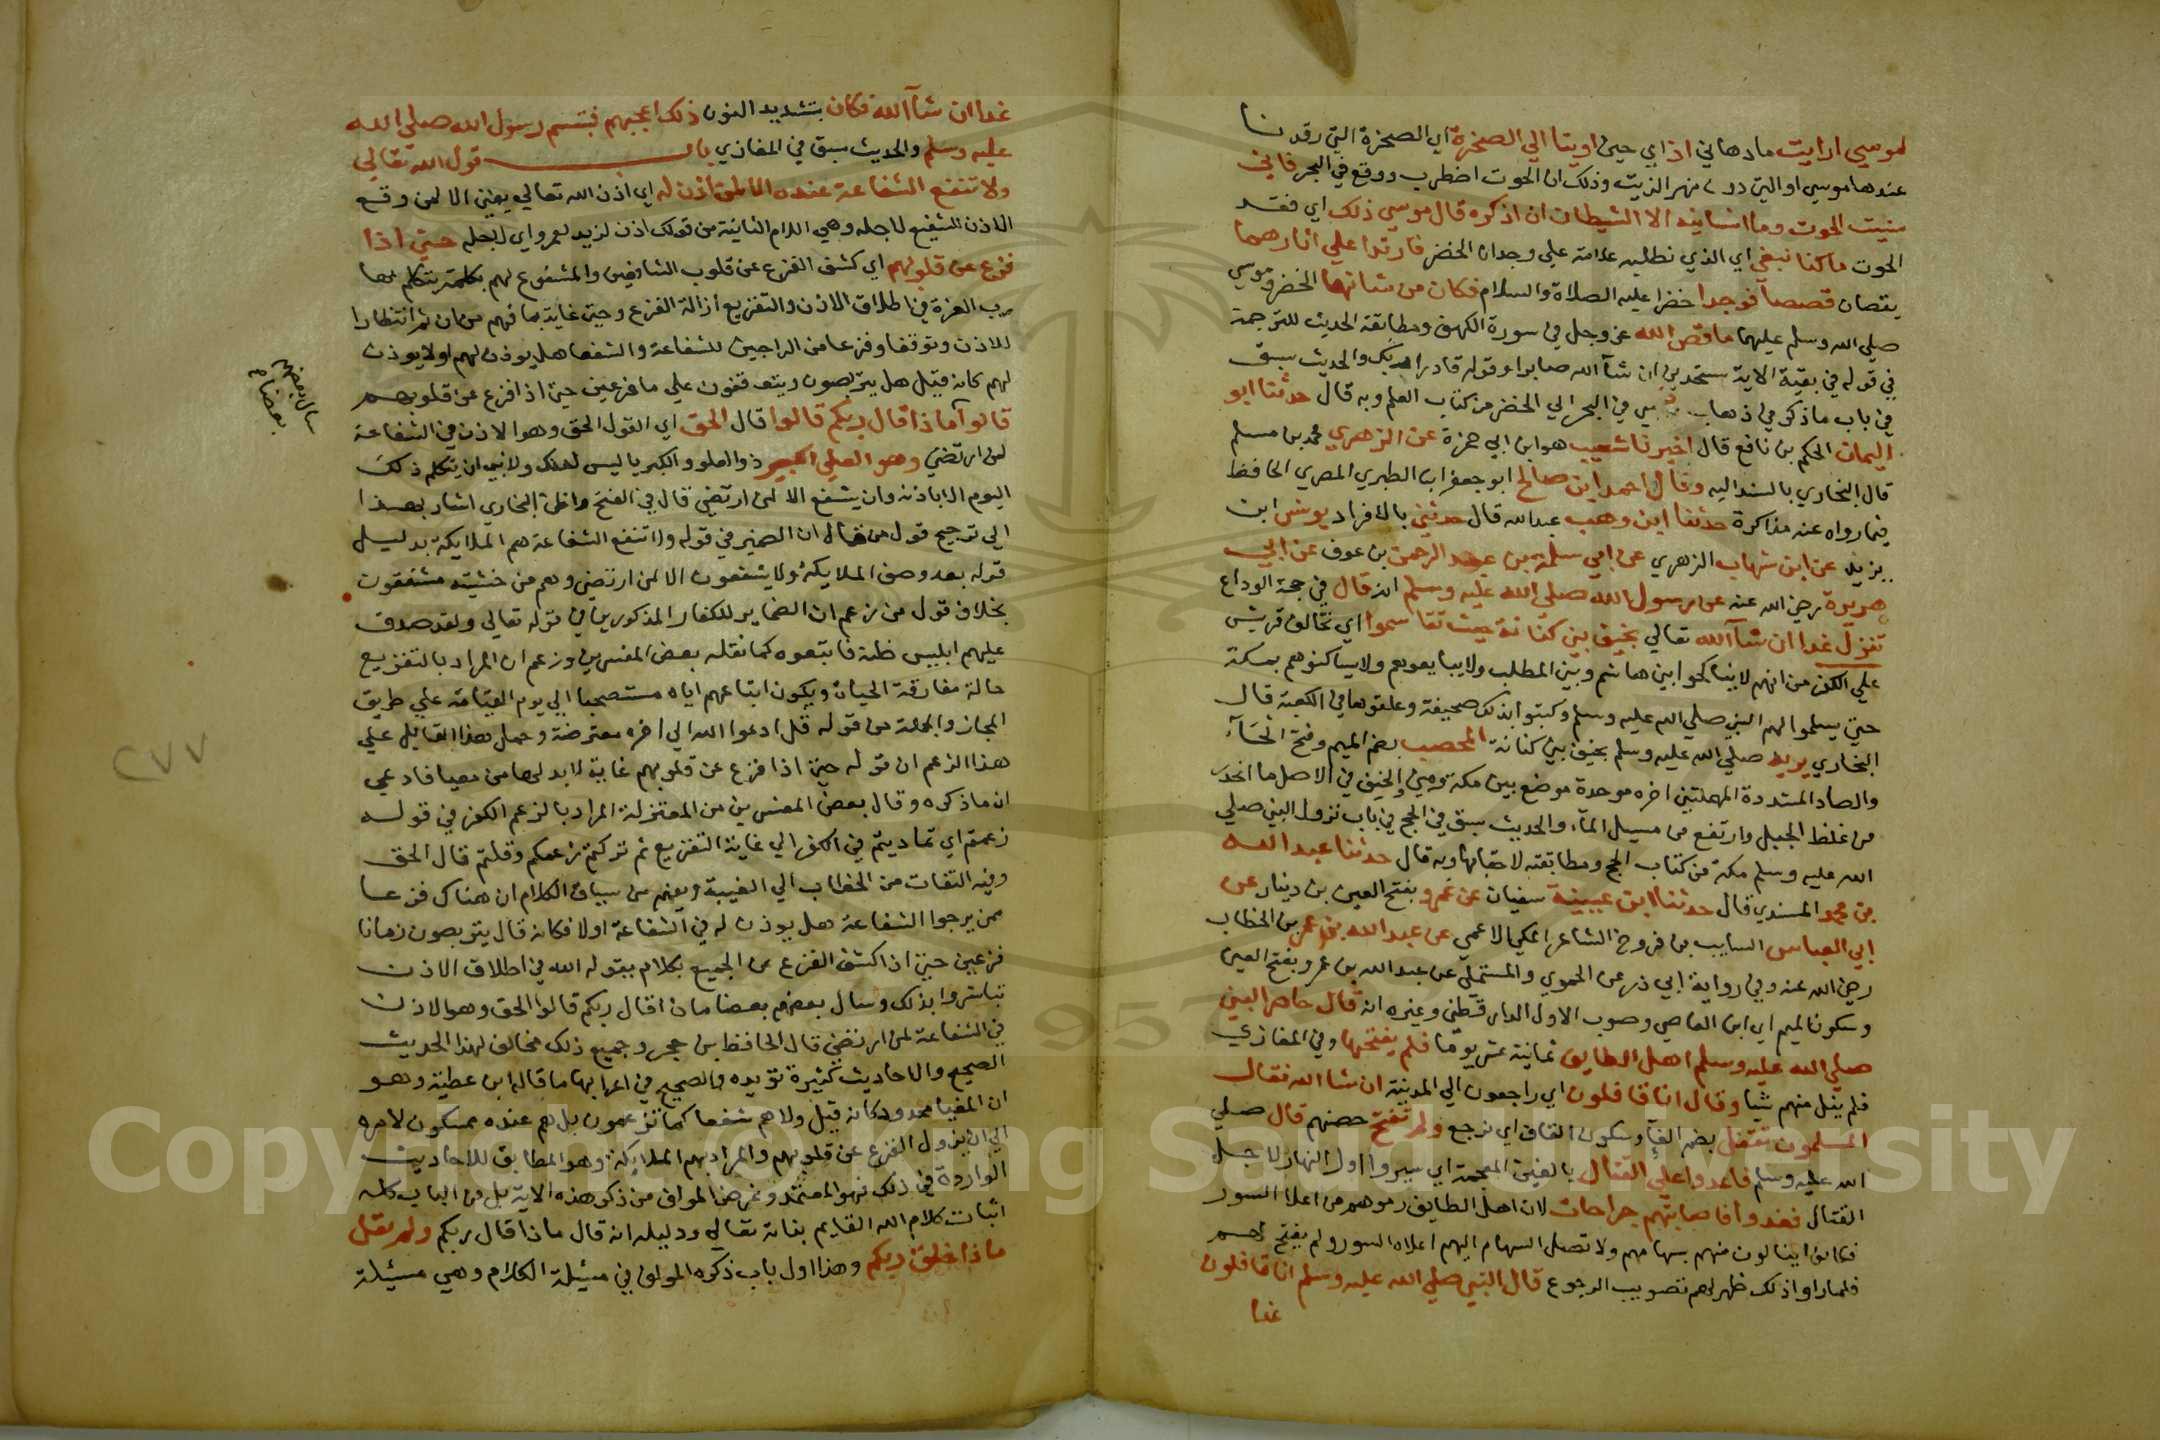 لموسي ارايت مادهاني اذ اي حين اوينا الي الصخرة اي الصخرة التي رقدنا
عندها موسي او التي دون نهر الزيت وذلك ان الحوت اضطرب ووقع في البحر فاني
نسيت الحوت وما انسانيه الا الشيطان ان اذكره قال موسي ذلك اي فقد
الحوت ماكنا نبغي اي الذي نطلبه علامة علي وجدان الخضر فارتدا علي اثارهما
يقصان قصصا فوجدا خضرا عليه الصلاة والسلام فكان من شانهما الخضر وموسي
صلي الله وسلم عليهما ماقص الله عز وجل في سورة الكهف ومطابقة الحديث للترجمة
في قوله في بقية الاية ستجدني ان شآ الله صابرا وقوله فاراد ربك والحديث سبق
في باب ماذكر في ذهاب موسي في البحر الي الخضر من كتاب العلم وبه قال حدثنا ابو
اليمان الحكم بن نافع قال اخبرنا شعيب هو ابن ابي حمزة عن الزهري محمد بن مسلم
قال البخاري بالسند اليه وقال احمد ابن صالح ابو جعفر ابن الطبري المصري الحافظ
فيما رواه عنه مذاكرة حدثنا ابن وهب عبدالله قال حدثني بالافراد يونس ابن
يزيد عن ابن شهاب الزهري عن ابي سلمة بن عبد الرحمن بن عوف عن ابي
هريرة رضي الله عنه عن رسول الله صلي الله عليه وسلم انه قال في حجة الوداع
ننزل غدا ان شآ الله تعالي بخيف بني كنانة حيث تقاسموا اي تحالف قريش
علي الكفر من انهم لايناكحوا بني هاشم وبني المطلب ولايبايعوهم ولايساكنوهم بمكة
حتي يسلموا الهم النبي صلي الله عليه وسلم وكتبوا بذلك صحيفة وعلقوها في الكعبة قال
البخاري يريد صلي الله عليه وسلم بخيف بني كنانة المحصب بضم الميم وفتح الحآء
والصاد المشددة المهملتين اخره موحدة موضع بين مكة ومني والخيف في الاصل ما انحدر
من غلظ الجبل وارتفع من مسيل المآء والحديث سبق في الحج في باب نزول النبي صلي
الله عليه وسلم مكة من كتاب الحج ومطابقته لاخفا بها وبه قال حدثنا عبد الله
بن محمد المسندي قال حدثنا ابن عيينة سفيان عن عمرو بفتح العين بن دينار عن
ابي العباس السايب بن فروخ الشاعر المكي الاعمي عن عبد الله بن عمر بن الخطاب
رضي الله عنه وفي رواية ابي ذر عن الحموي والمستملي عن عبد الله بن عمرو بفتح العين
وسكون الميم اي ابن العاصي وصوب الاول الدارقطني وغيره انه قال حاصر النبي
صلي الله عليه وسلم اهل الطايف ثمانية عشر يوما فلم يفتحها وفي المغازي
فلم ينل منهم شيا وقال انا قافلون اي راجعون الي المدينة ان شا الله فقال
المسلمون نقفل بضم الفآء وسكون القاف اي نرجع ولم نفتح حصنهم قال صلي
الله عليه وسلم فاغدوا علي القتال بالغين المعجمة اي سيروا اول النهار لاجل
القتال فغدوا فاصابتهم جراحات لان اهل الطايف رموهم من اعلا السور
فكانوا ينالون منهم بسهامهم ولا تصل السهام اليهم اعلاه السور ولم يفتح لهم
فلما راوا ذلك ظهر لهم تصويب الرجوع قال النبي صلي الله عليه وسلم انا قافلون
غدا
غدا ان شآ الله فكان بتشديد النون ذلك اعجبهم فتبسم رسول الله صلي الله
عليه وسلم والحديث سبق في المغازي باب قول الله تعالي
ولا تنفع الشفاعة عنده الا لمن اذن له اي اذن الله تعالي يعني الا لمن وقع
الاذن للشفيع لاجله وهي اللام الثانية من قولك اذن لزيد لعمرو اي لاجله حتي اذا
فزع عن قلوبهم اي كشف الفزع عن قلوب الشافعين والمشفوع لهم بكلمة يتكلم بها
رب العزة في اطلاق الاذن والتفزيع ازالة الفزع وحتي غاية بما فهم من ان ثم انتظارا
للاذن وتوقفا وفزعا من الراجين للشفاعة والشفعا هل يوذن لهم او لا يوذن
لهم كانه قيل هل يتربصون ويتوقفون علي ما فزعين حتي اذا فزع عن قلوبهم
قالوا ماذا قال ربكم قالوا قال الحق اي القول الحق وهوا لاذن في الشفاعة
لمن ارتضي وهو العلي الكبير ذو العلو والكبريا ليس لملك ولا نبي ان يتكلم ذلك
اليوم الا باذنه وان يشفع الا لمن ارتضي قال في الفتح واظن البخاري اشار بهذا
الي ترجيح قول من قال ان الضمير في قوله ولا تنفع الشفاعة هم الملايكة بدليل
قوله بعد وصف الملايكة ولا يشفعون الا لمن ارتضي وهم من خشيته مشفقون
بخلاف قول من زعم ان الضماير للكفار المذكورين في قوله تعالي ولقد صدق
عليهم ابليس ظنه فاتبعوه كما نقله بعض المفسرين وزعم ان المراد بالتفزيع
حالة مفارقة الحياة ويكون اتباعهم اياه مستصحبا الي يوم القيامة علي طريق
المجاز والجملة من قوله قل ادعوا الله الي اخره معترضة وحمل هذا القايل علي
هذا الزعم ان قوله حتي اذا فزع عن قلوبهم غاية لابد لها من مغيا فادعي
ان ماذكره وقال بعض المفسرين من المعتزلة المراد بالزعم الكفر في قوله
زعمتم اي تماديتم في الكفر الي غاية التفزيع ثم تركتم زعمكم وقلتم قال الحق
وفيه التفات من الخطاب الي الغيبة ويفهم من سياق الكلام ان هناك فزعا
ممن يرجوا الشفاعة هل يوذن له في الشفاعة اولا فكانه قال يتربصون زمانا
فزعين حتي اذا كشف الفزع عن الجميع بكلام يقوله الله في اطلاق الاذن
تباشروا بذلك وسال بعضهم بعضا ماذا قال ربكم قالوا الحق وهوا لاذن
في الشفاعة لمن ارتضي قال الحافظ بن حجر وجميع ذلك مخالف لهذا الحديث
الصحيح والاحاديث كثيرة تؤيده والصحيح في اعرابها ما قاله ابن عطية وهو
ان المغيا محذوف كانه قيل ولا هم شفعا كما تزعمون بل هم عنده ممسكون لامره
الي ان يزول الفزع عن قلوبهم والمراد بهم الملايكة وهو المطابق للاحاديث
الواردة في ذلك فهو المعتمد وغرض المولف من ذكر هذه الاية بل من الباب كله
اثبات كلام الله القايم بذاته تعالي ودليله انه قال ماذا قال ربكم ولم يقل
ماذا خلق ربكم وهذا اول باب ذكره المولف في مسئلة الكلام وهي مسئلة
سال بعضهم
بعضا
٢٧٧
Copyright © King Saud University
1957